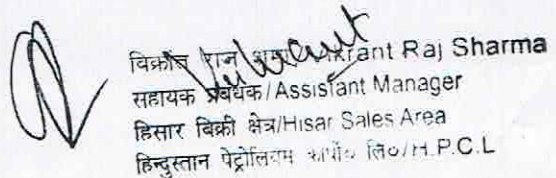 विक्रांत राज शर्मा/Vikrant Raj Sharma
सहायक प्रबंधक/Assistant Manager
हिसार बिक्री क्षेत्र/Hisar Sales Area
हिन्दुस्तान पेट्रोलियम कार्पो० लि०/H.P.C.L